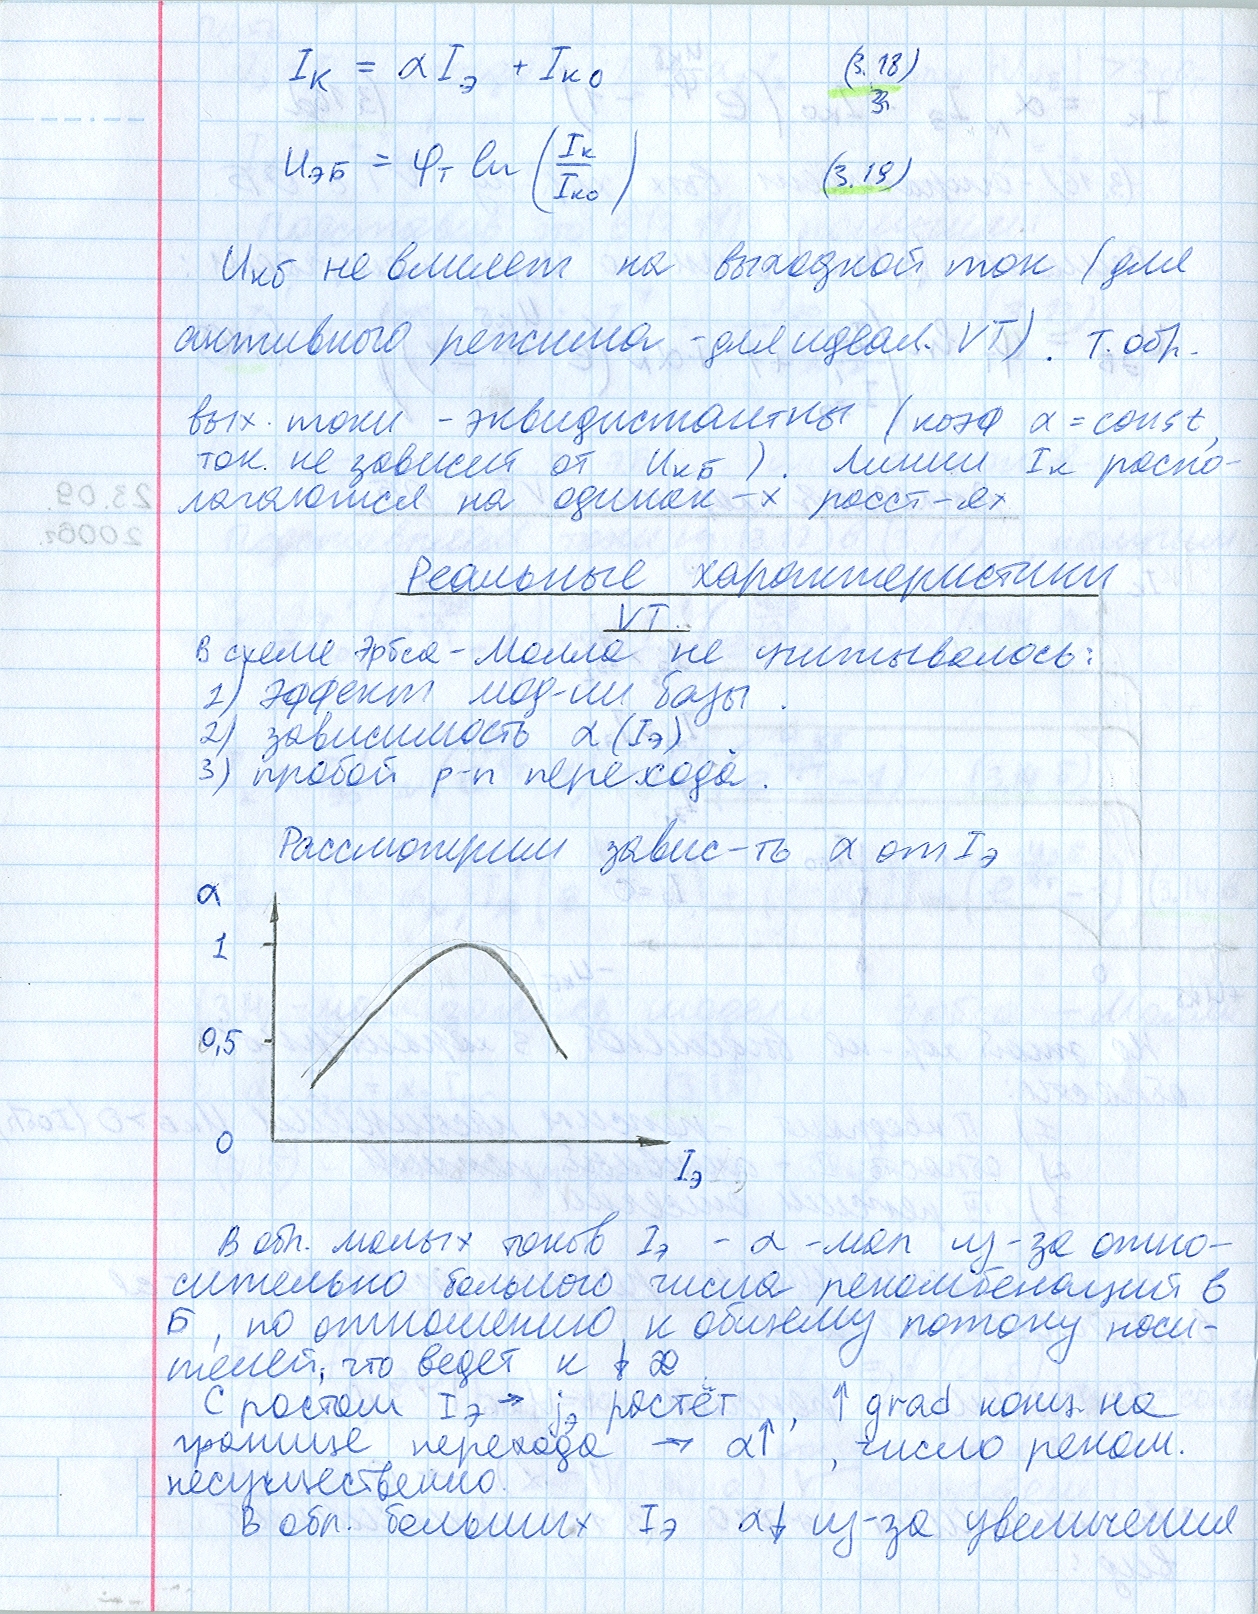 Iк = αIэ + Iко (3.18)
з
Uэб = φт ln (Iк/Iко) (3.19)
Uкб не влияет на выходной ток (для
активного режима - для идеал. VT). Т. обр.
вых. токи - эквидистантны (коэф α = const,
ток. не зависит от Uкб). Линии Iк распо-
лагаются на одинак-х расст-ях
Реальные характеристики
VT
В схеме Эрбса-Молла не учитывалось:
1) эффект мод-ии базы.
2) зависимость α(Iэ)
3) пробой p-n перехода.
Рассмотрим завис-ть α от Iэ
α
1
0,5
0
Iэ
В обл. малых токов Iэ - α - мал из-за отно-
сительно большого числа рекомбенаций в
Б, по отношению к общему потоку носи-
телей, что ведет к ↓ α
С ростом Iэ → jэ растёт, ↑ grad конц. на
границе перехода → α↑, число реком.
несущественно.
В обл. больших Iэ α↓ из-за увеличения